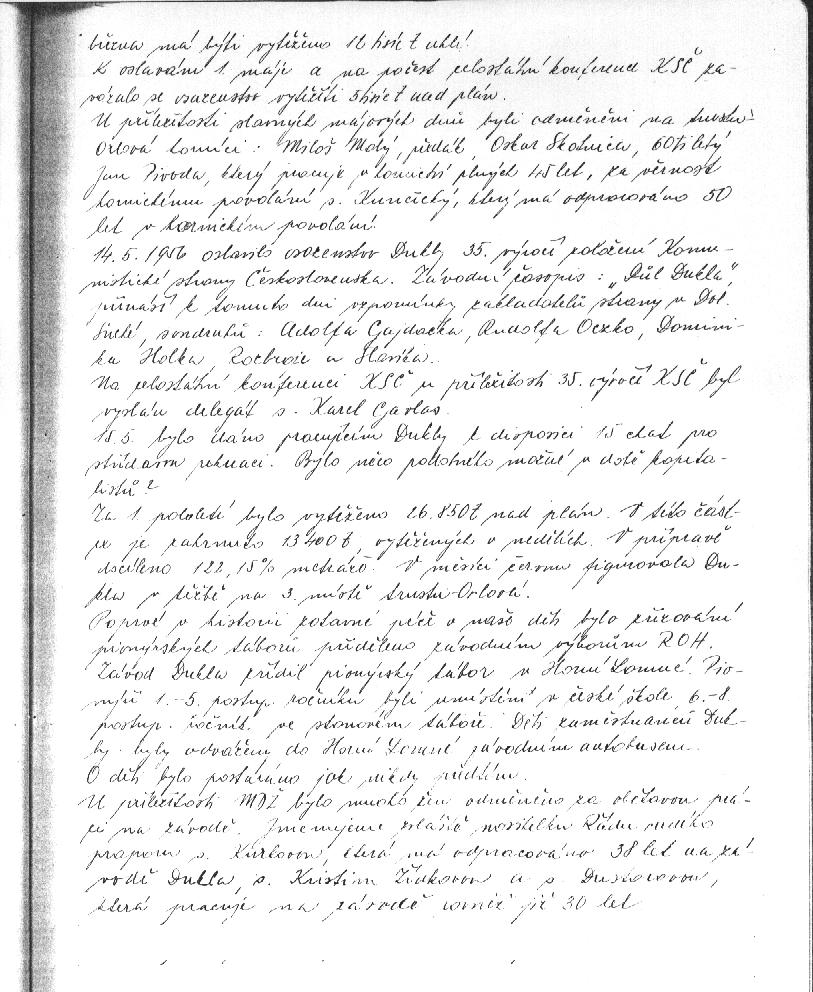 března má býti vytěženo 12 tisíc t uhlí.
K oslavám 1. máje a na počest celostátní konference KSČ za-
vázalo se osazenstvo vytěžiti 5 tisíc t nad plán.
U příležitosti slavných májových dnů byli odměněni na trustu
Orlová horníci: Miloš Malý, předák, Oskar Skotnica, 60ti letý
Jan Pivoda, který pracuje v hornictví plných 45 let, za věrnost
hornickému povolání s. Kunčický, který má odpracováno 50
let v hornickém povolání.
14.5.1956 oslavilo osazenstvo Dukly 35. výročí založení Komu-
nistické strany Československa. Závodní časopis: "Důl Dukla",
přináší k tomuto dni vzpomínky zakladatelů strany v Dol.
Suché, soudruhů: Adolfa Gajdačka, Rudolfa Oczko, Domini-
ka Holka, a
Na celostátní konferenci KSČ u příležitosti 35. výročí KSČ byl
vyslán delegát s. Karel Gavlas.
15.5. bylo dáno pracujícím Dukly k disposici 15 chat pro
rekreaci. Bylo něco podobného možné v době kapita-
listů?
Za 1. pololetí bylo vytěženo 26.850 t nad plán. V této část-
ce je zahrnuto 13400 t, vytěžených v nedělích. V přípravě
docíleno 122,15% metráže. V měsíci červnu figurovala Du-
kla v těžbě na 3. místě trustu Orlová.
Poprvé v historii zotavné péče o naše děti bylo zřizování
pionýrských táborů přiděleno závodním výborům ROH.
Závod Dukla zřídil pionýrský tábor v Horní Lomné. Pio-
nýři 1.-5. postup. ročníku byli umístěni v české škole, 6.-8.
postup. ročník. ve stanovém táboře. Děti zaměstnanců Duk-
ly byly odváženy do Horní Lomné závodním autobusem.
O děti bylo postaráno jak nikdy předtím.
U příležitosti MDŽ bylo mnoho žen odměněno za obětavou prá-
ci na závodě. Jmenujeme zvláště nositelku Řádu rudého
praporu s. která má odpracováno 38 let na zá-
vodě Dukla, s. Kristinu a s.
která pracuje na závodě rovněž již 30 let